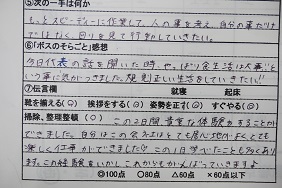 ⑤次の一手は何か
もっとスピーディーに作業して、人の事を考え、自分の事だけ
ではなく、回りを見て行動していきたい。
⑥「ボスのそらごと」感想
今日代表の話を聞いた時、やっぱり金生活は大事だと
いう事に気がつきました。規則正しい生活をしていきたい!!
⑦伝言欄 就寝 起床
靴を揃える(○) 挨拶をする(○) 姿勢を正す(○) すぐやる(○)
掃除、整理整頓( ) この2日間貴重な体験がすることが
できました。自分はこの会社はとても居心地がよくとても
楽しく仕事ができました!この1日学べたことも多くあり
ます。この経験をいかしこれからもがんばっていきますよ
◎100点 ○80点 △60点 ×60点以下